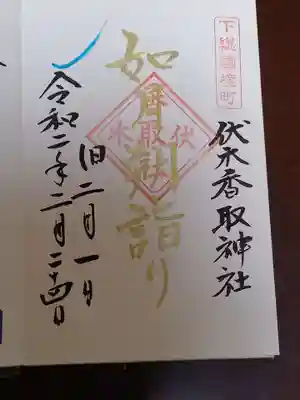 下総國境町
伏木香取神社
如月朔詣り
伏木
香取社
旧二月一日
令和二年二月二十四日